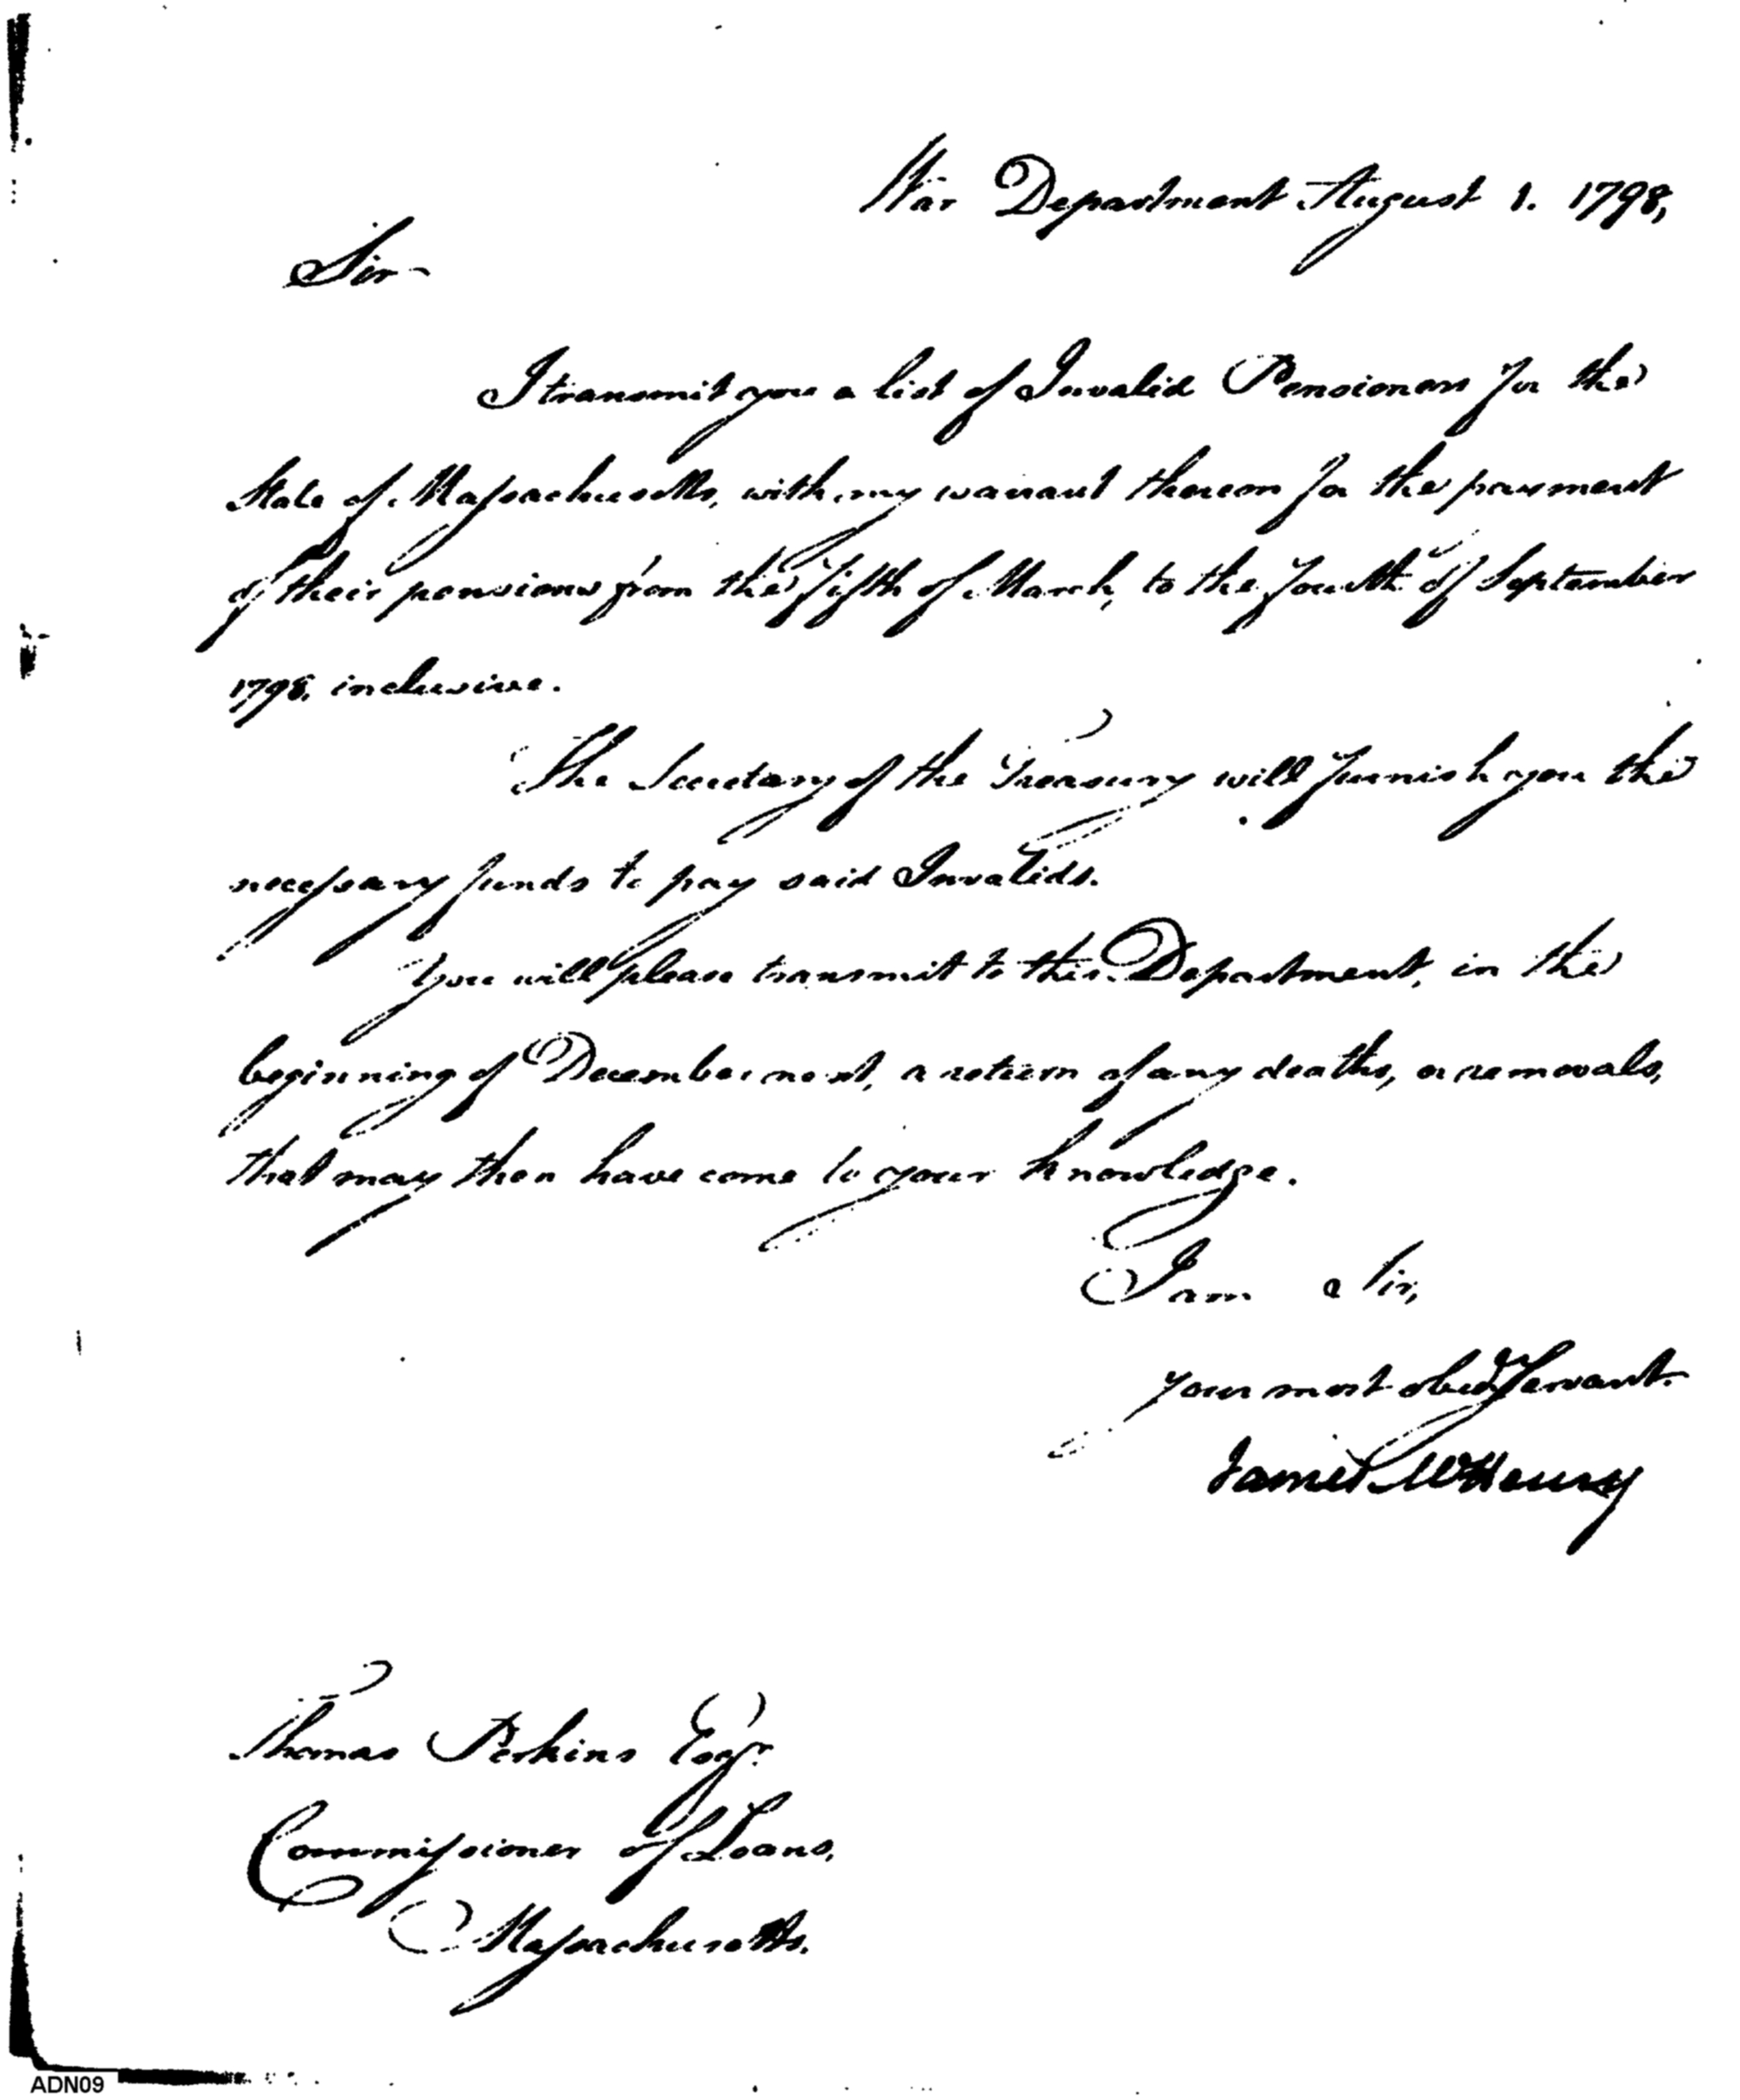 War Department August 1. 1798,
Sir
I transmit you a list of Invalid Pensioners for the
State of Massachusetts, with my warrant thereon for the payment
of their pensions from the Fifth of March, to the fourth of September
1798, inclusive.
The Secretary of the Treasury will furnish you the
necessary funds to pay said Invalids.
You will please transmit to this Department, in the
beginning of December next, a return of any deaths, or removals,
that may then have come to your knowledge.
I am Sir,
your most obed Servant.
James McHenry
Thomas Perkins Esqr.
Commissioner of Loans,
Massachusetts.
ADN09